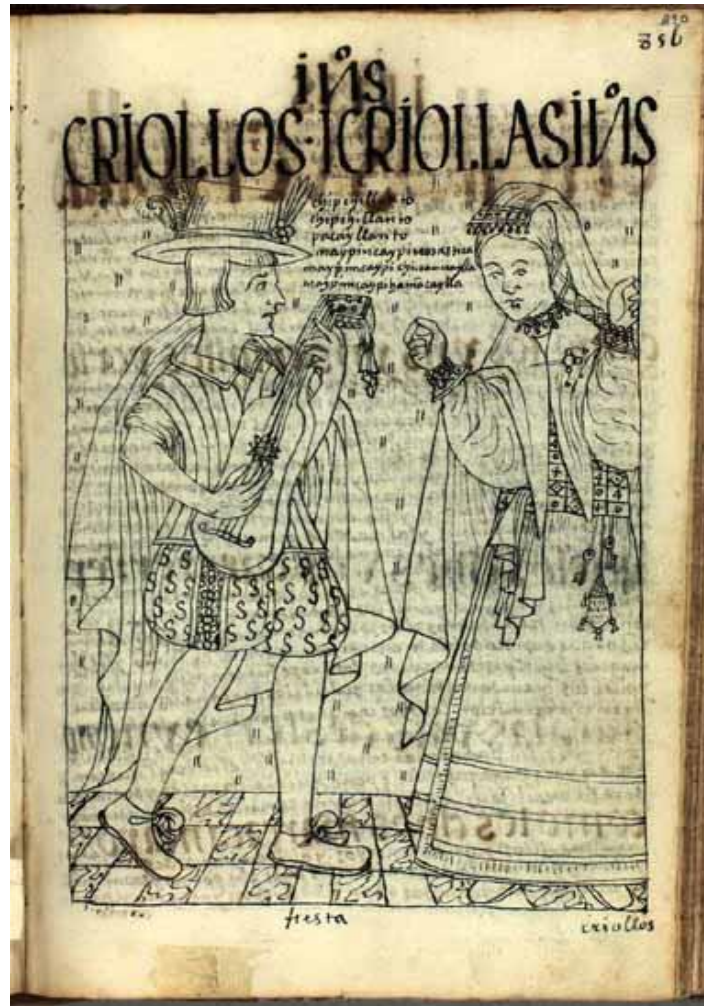 856
INºS
CRIOLLOS·ICRIOLLASINºS
chipchillanto
chipchillanto
pacay llanto
maypin caypi rosas tica
maypin caypi chiuanuaylla
maypin caypi hamancaylla
fiesta
criollos